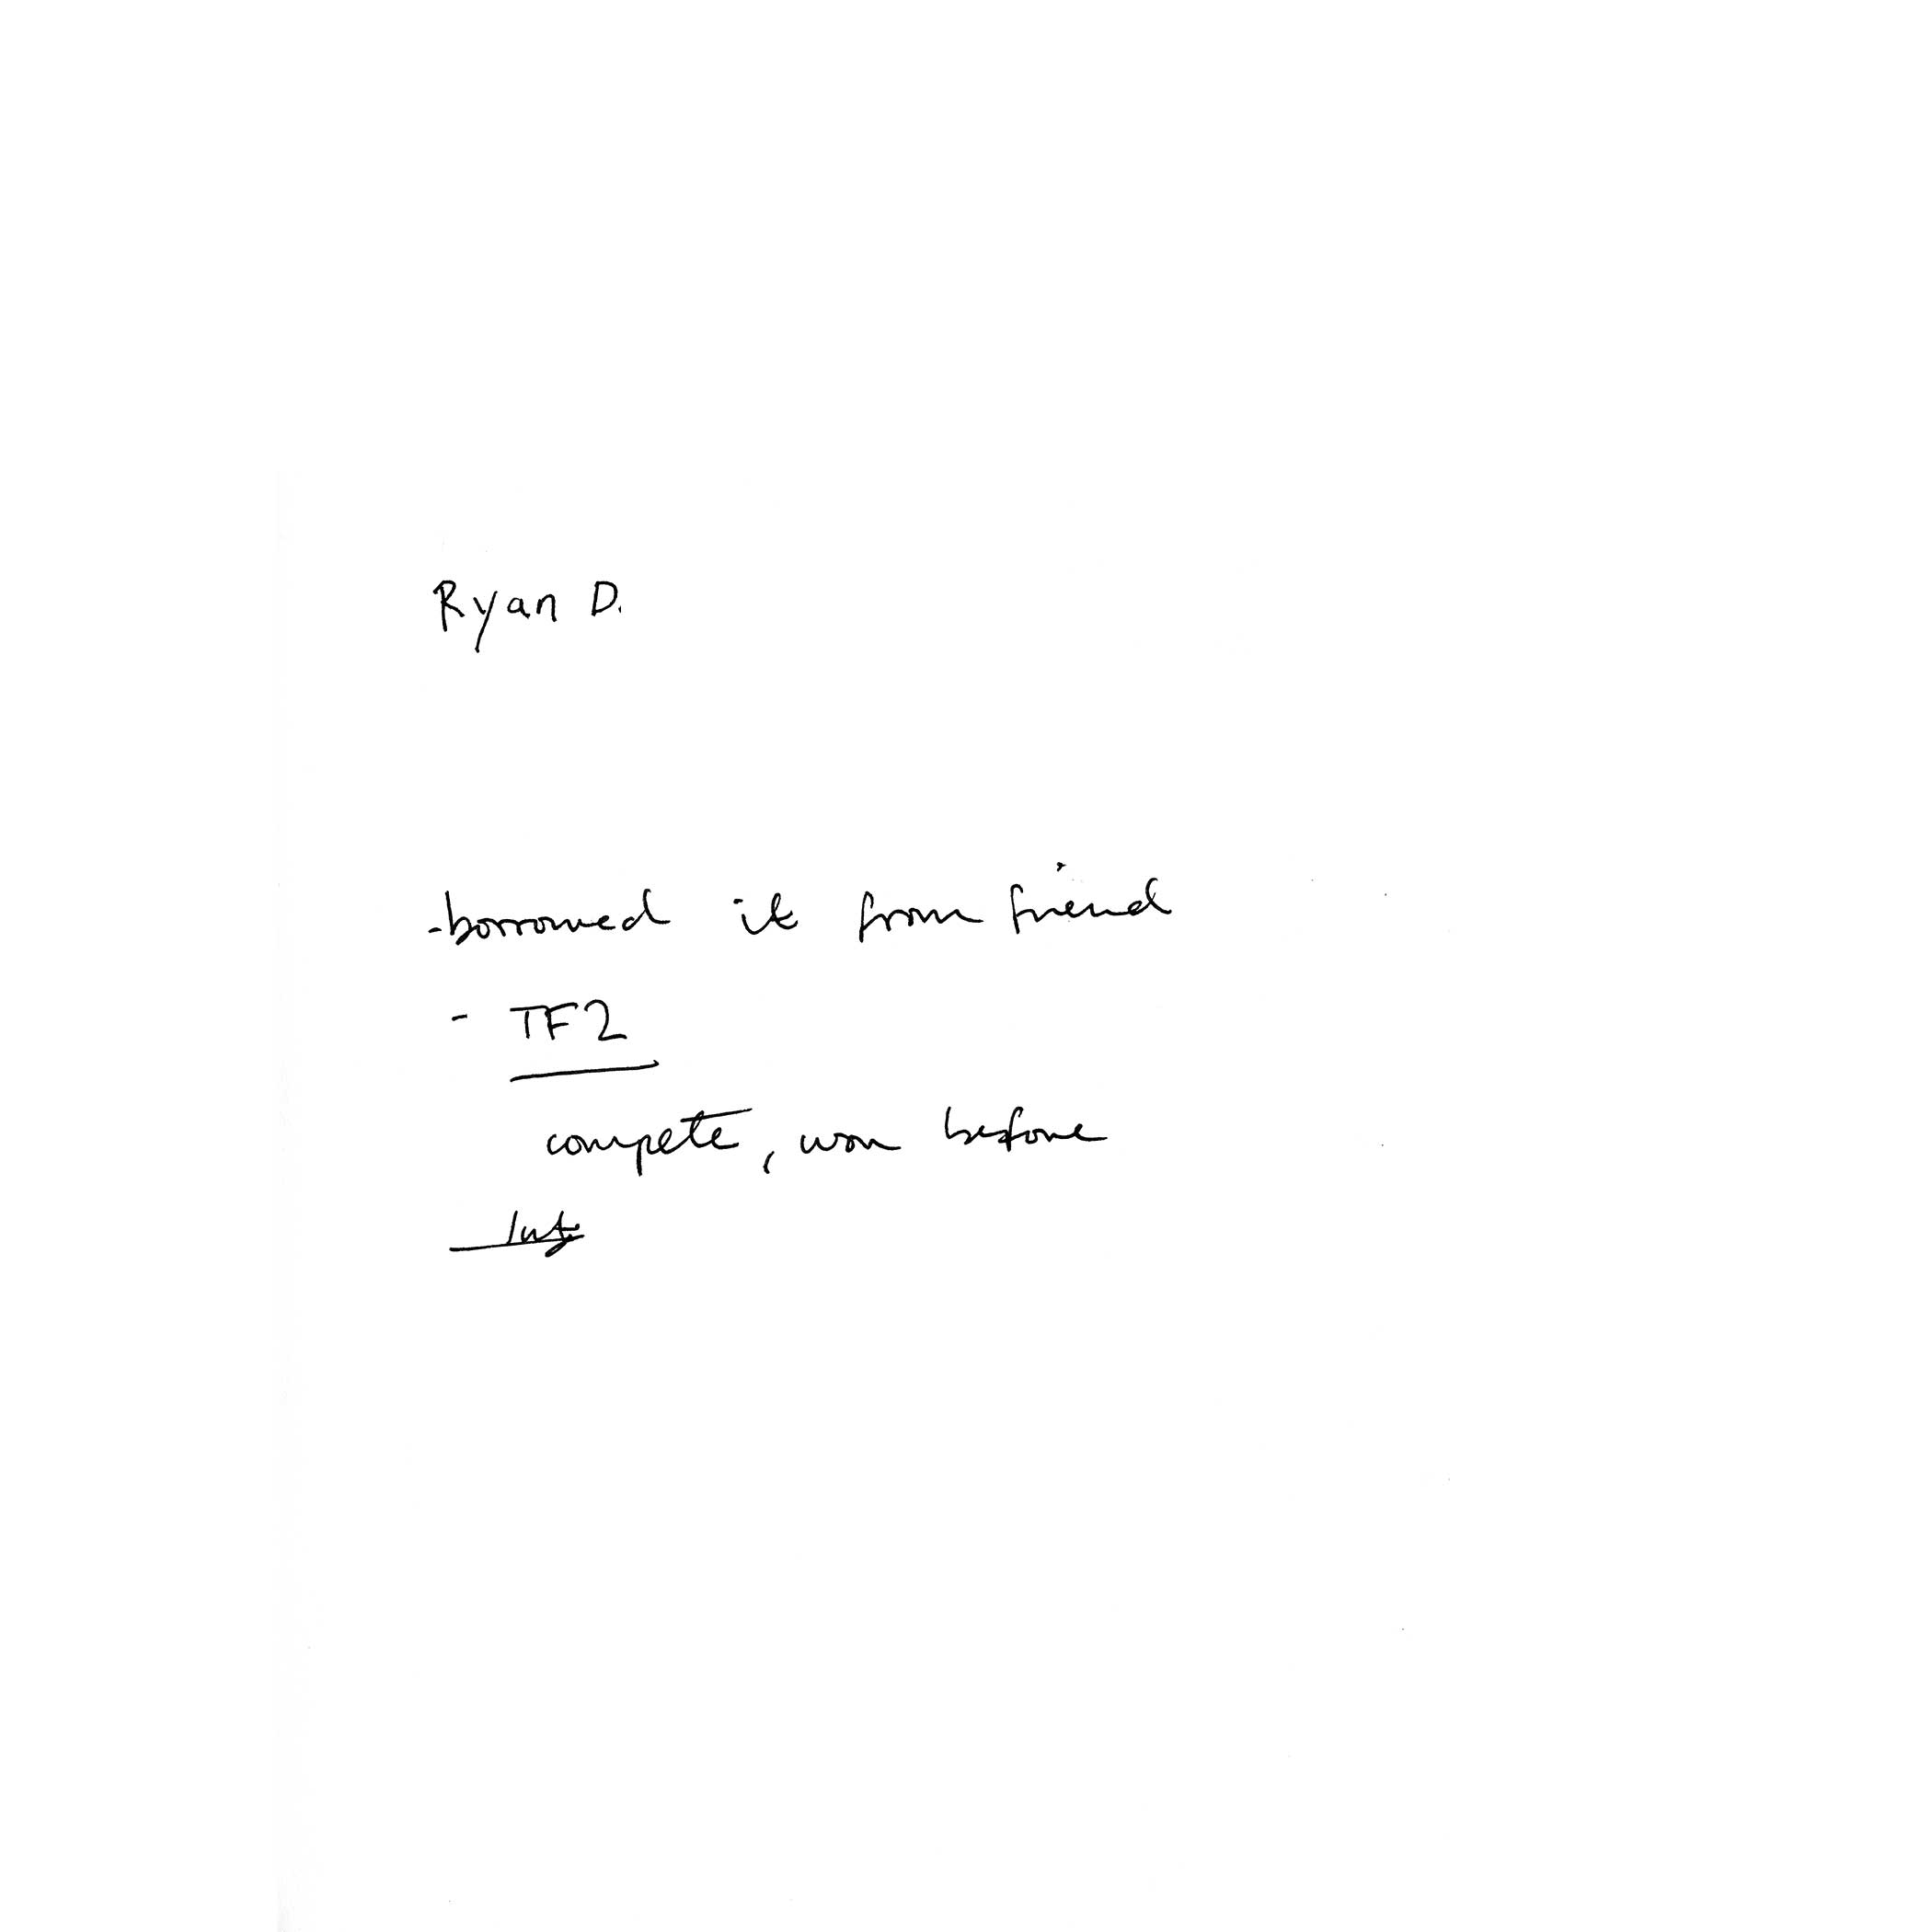 Ryan D.
-borrowed it from friend
- TF2
compete, won before